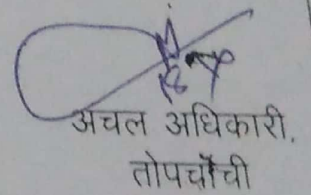 अचल अधिकारी.
तोपचाँची